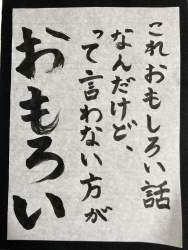 これおもしろい話
なんだけど、
って言わない方が
おもろい